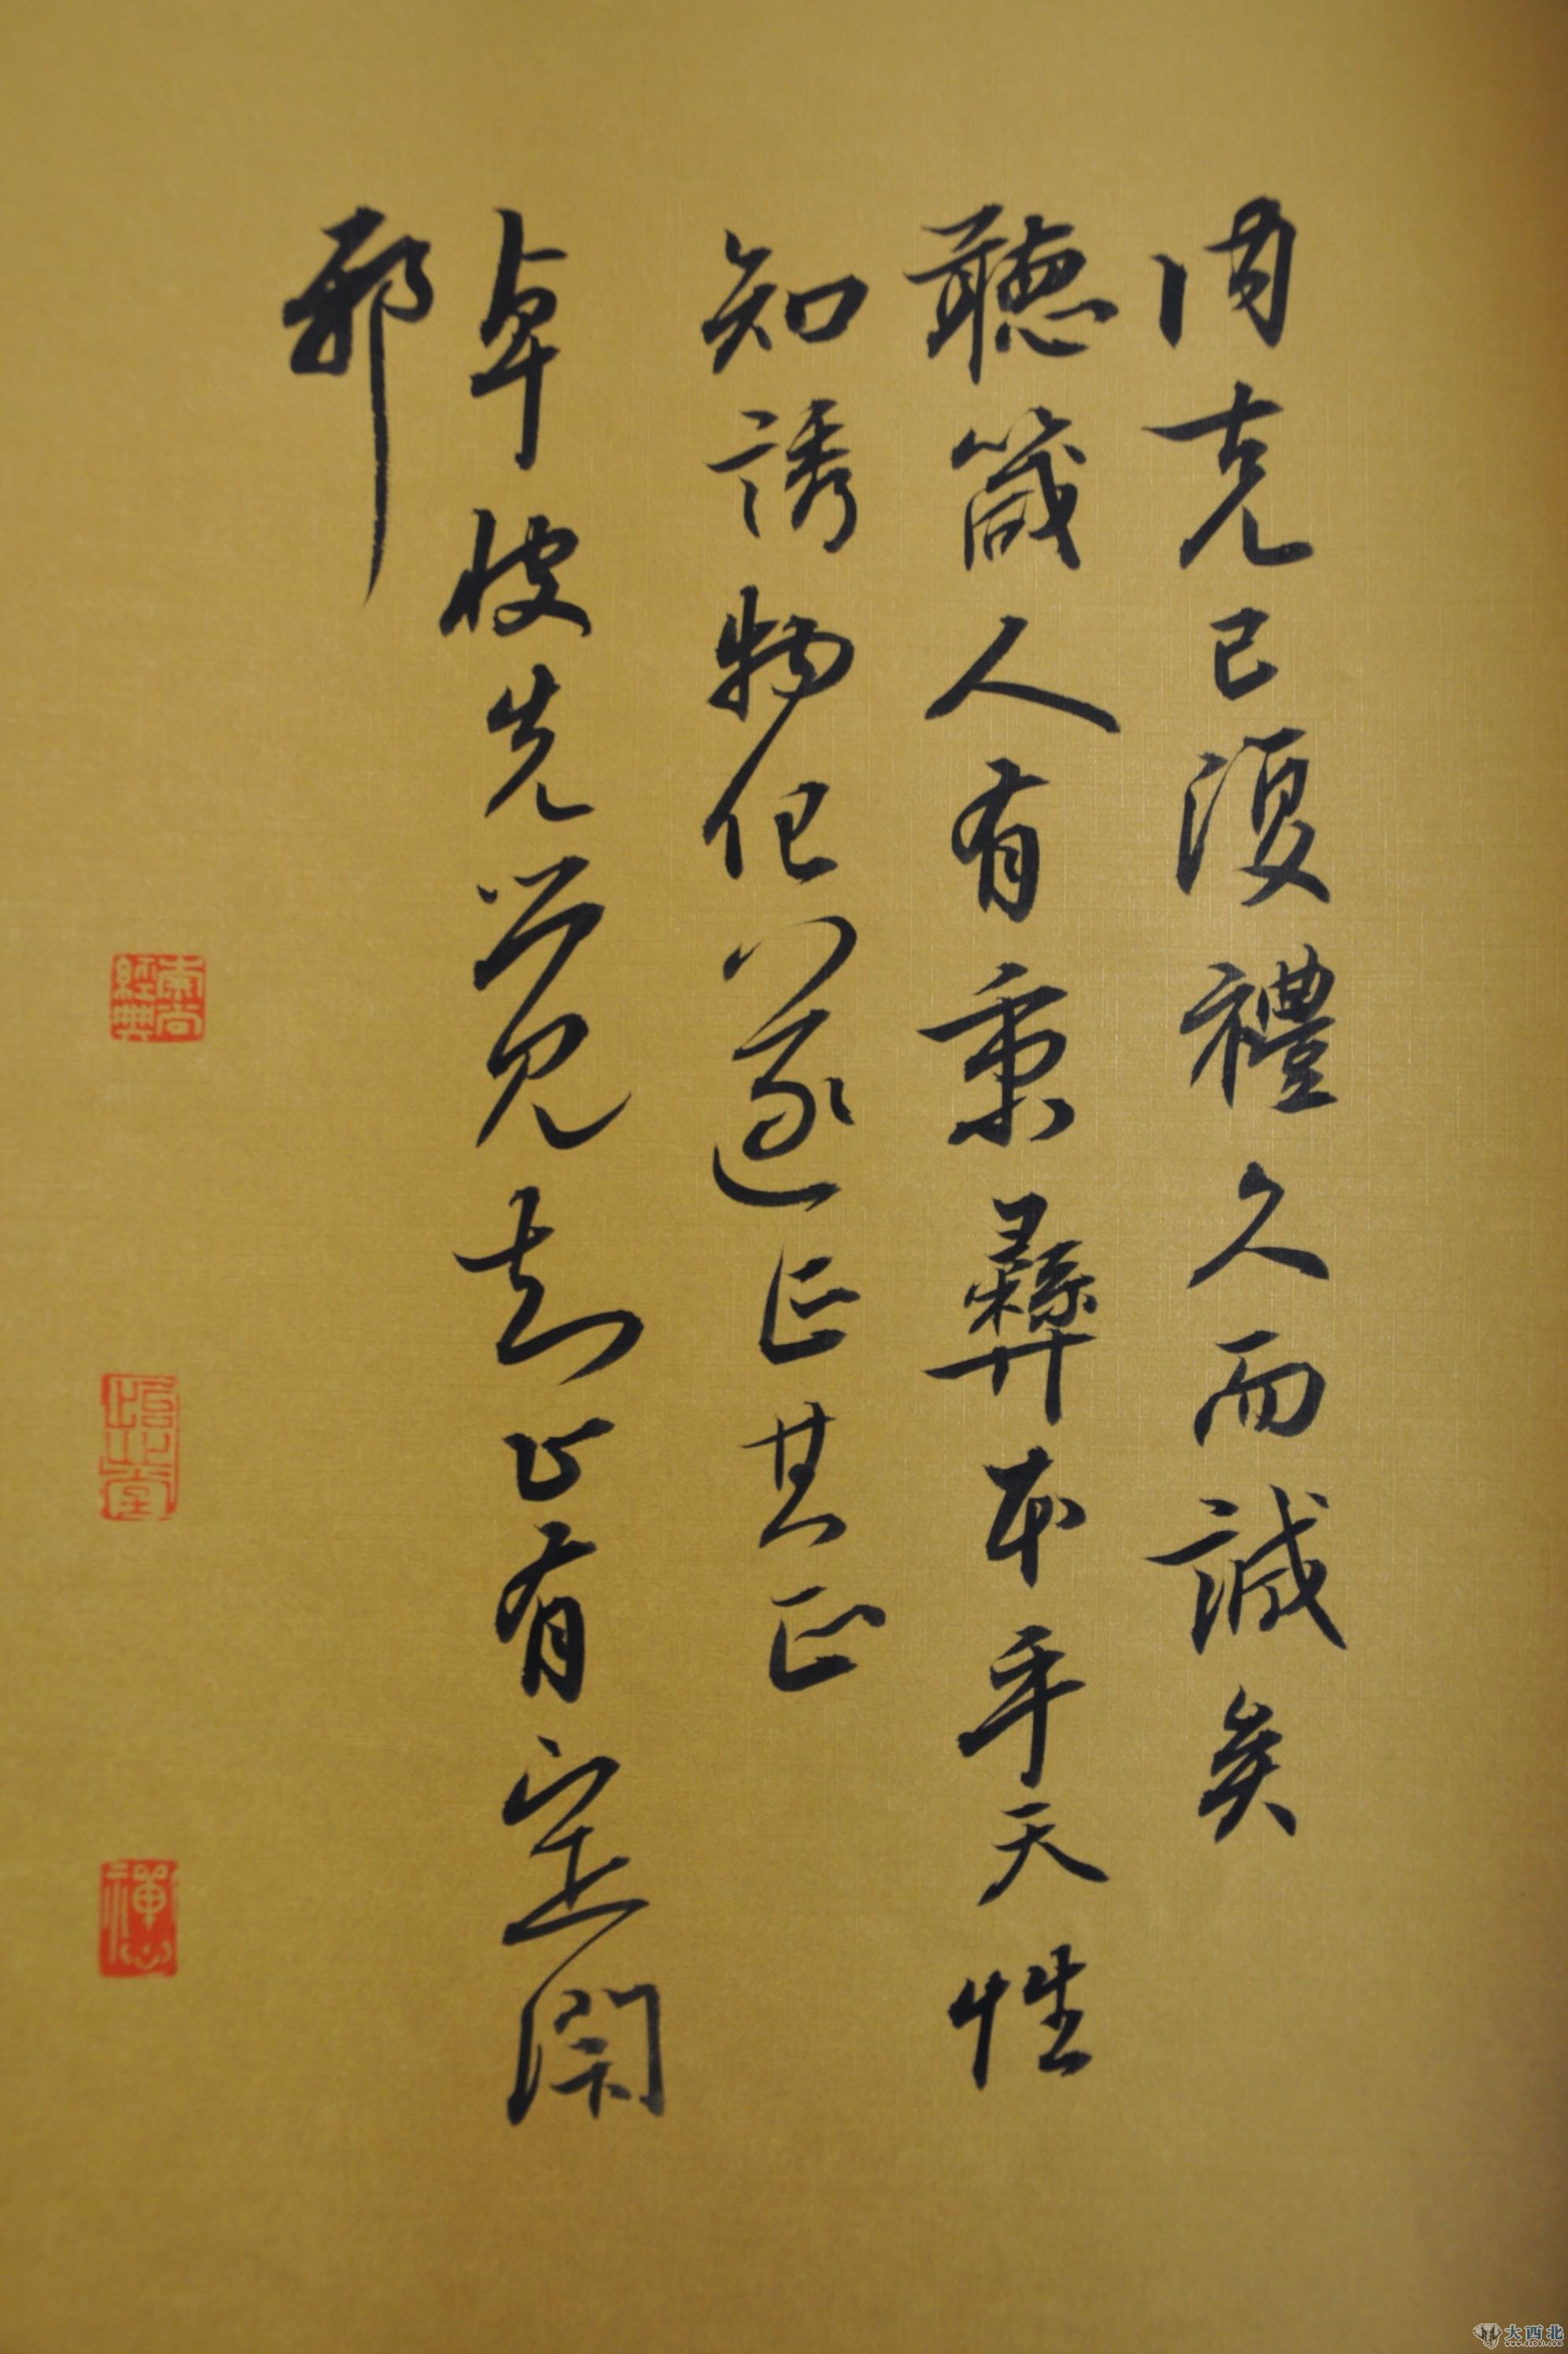 内克己復禮久而誠矣
聽箴人有秉彝本乎天性
知誘物化遂亡其正
卓彼先覺知止有定閑
邪
禅心
大西北